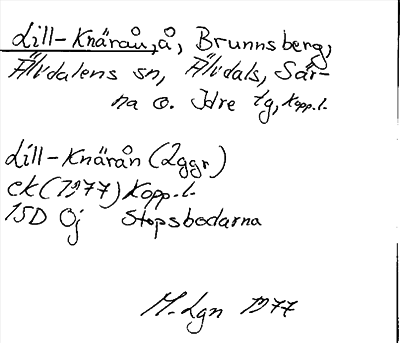 Lill-Knärån, å, Brunnsberg,
Älvdalens sn, Älvdals, Sär-
na o. Idre tg, Kopp.l.
Lill-Knärån (2ggr)
ek (1977) Kopp.l.
15D 0j Stopsbodarna
M. Lgn 1977